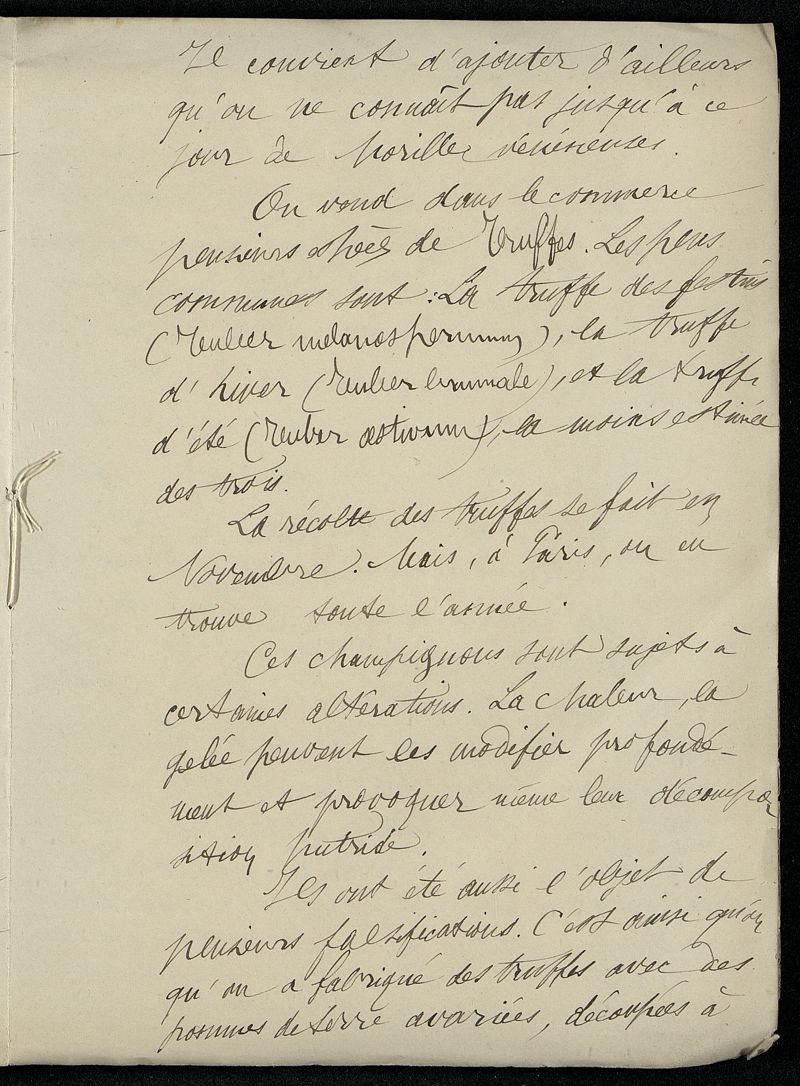 Il convient d'ajouter d'ailleurs
qu'on ne connaît pas jusqu'à ce
jour de Morilles vénéneuses.
On vend dans le commerce
plusieurs espèces de Truffes. Les plus
communes sont : La truffe des festins
(Tuber mélanospermum), la truffe
d'hiver (Tuber brumale), et la truffe
d'été (Tuber æstivum), la moins estimée
des trois.
La récolte des truffes se fait en
Novembre. Mais, à Paris, on en
trouve toute l'année.
Ces champignons sont sujets à
certaines altérations. La chaleur, la
gelée peuvent les modifier profondé-
ment et provoquer même leur décompo
sition putride.
Ils ont été aussi l'objet de
plusieurs falsifications. C'est ainsi qu'on
qu'on a fabriqué des truffes avec des
pommes de terre avariées, découpées à